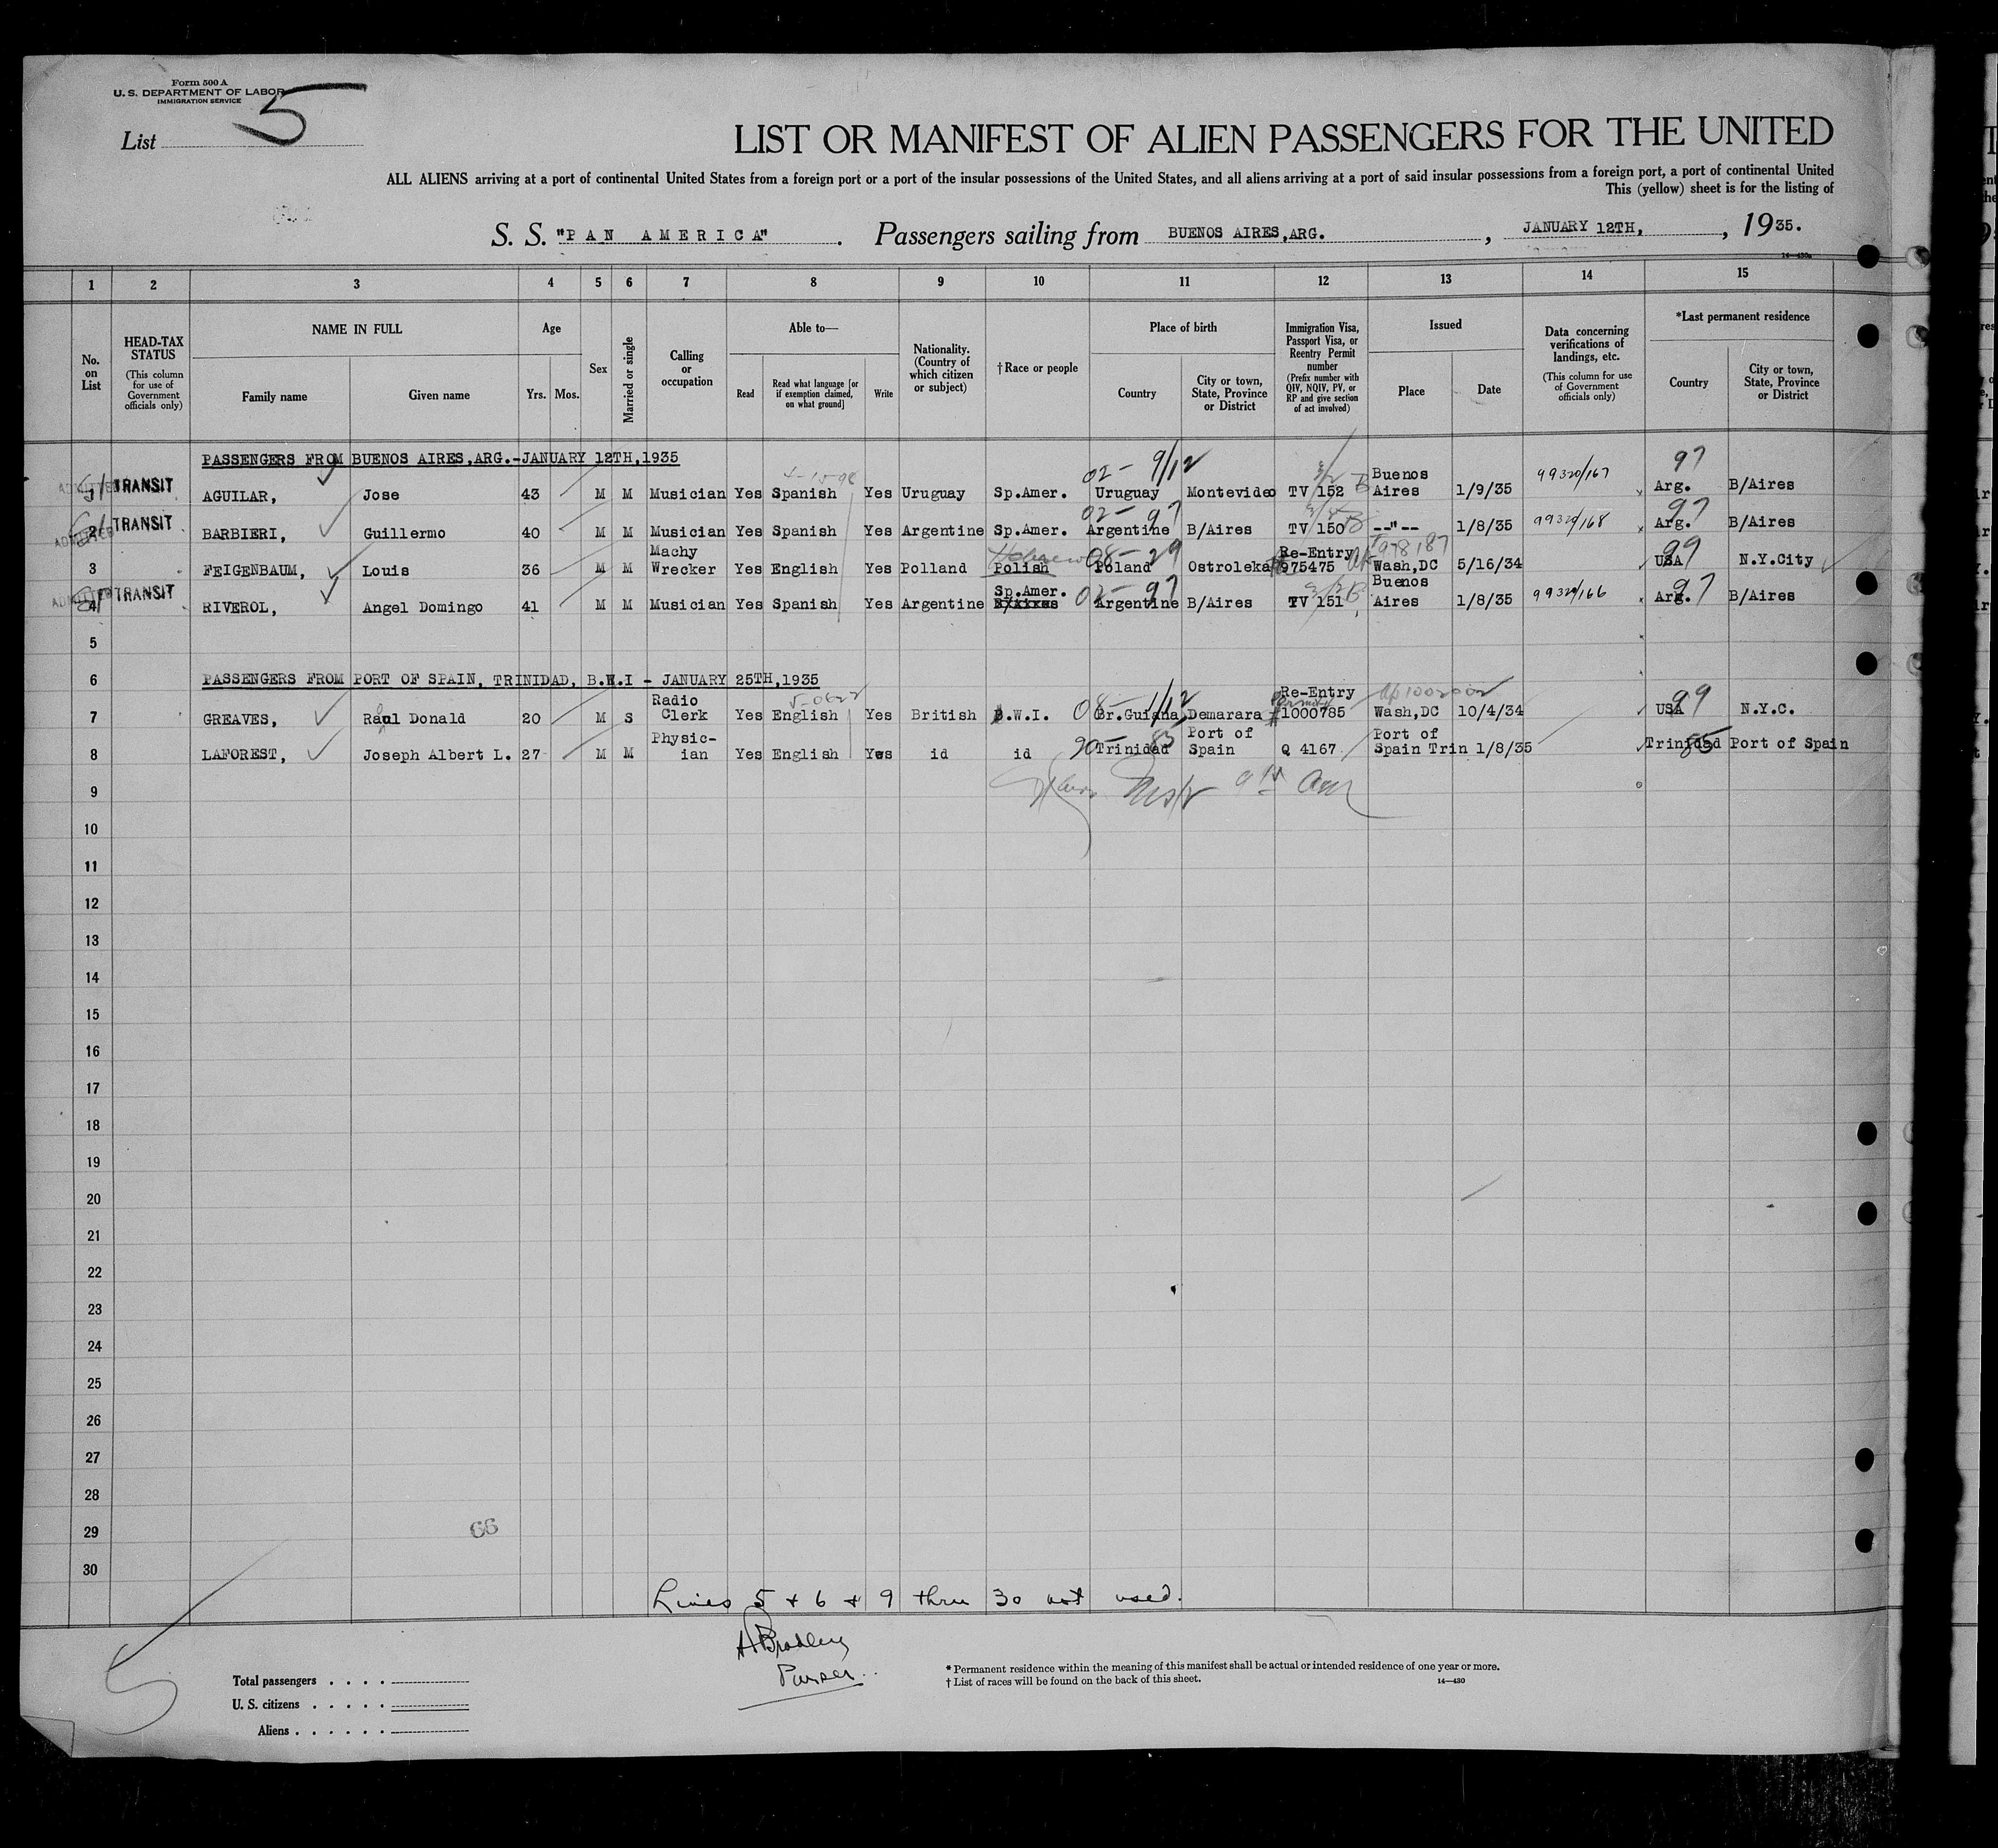 Form 500 A
U. S. DEPARTMENT OF LABOR
IMMIGRATION SERVICE
List 5
LIST OR MANIFEST OF ALIEN PASSENGERS FOR THE UNITED
ALL ALIENS arriving at a port of continental United States from a foreign port or a port of the insular possessions of the United States, and all aliens arriving at a port of said insular possessions from a foreign port, a port of continental United
This (yellow) sheet is for the listing of
S. S. "PAN AMERICA" . Passengers sailing from BUENOS AIRES,ARG. , JANUARY 12TH, , 1935.
14—430a
1 2 3 4 5 6 7 8 9 10 11 12 13 14 15
No. on List
HEAD-TAX STATUS (This column for use of Government officials only)
NAME IN FULL
Family name Given name
Age
Yrs. Mos.
Sex
Married or single
Calling or occupation
Able to—
Read Read what language [or if exemption claimed, on what ground] Write
Nationality. (Country of which citizen or subject)
†Race or people
Place of birth
Country City or town, State, Province or District
Immigration Visa, Passport Visa, or Reentry Permit number (Prefix number with QIV, NQIV, PV, or RP and give section of act involved)
Issued
Place Date
Data concerning verifications of landings, etc. (This column for use of Government officials only)
*Last permanent residence
Country City or town, State, Province or District
PASSENGERS FROM BUENOS AIRES,ARG.-JANUARY 12TH,1935
02- 9/12 97
1 ADMITTED TRANSIT AGUILAR, Jose 43 M M Musician Yes Spanish Yes Uruguay Sp.Amer. Uruguay Montevideo TV 152 Buenos Aires 1/9/35 99320/167 Arg. B/Aires
02- 97 97
2 ADMITTED TRANSIT BARBIERI, Guillermo 40 M M Musician Yes Spanish Yes Argentine Sp.Amer. Argentine B/Aires TV 150 --"-- 1/8/35 99320/168 Arg. B/Aires
3 FEIGENBAUM, Louis 36 M M Machy Wrecker Yes English Yes Polland Hebrew Polish 08- 29 Poland Ostroleka Re-Entry #975475 Wash,DC 5/16/34 99 USA N.Y.City
4 ADMITTED TRANSIT RIVEROL, Angel Domingo 41 M M Musician Yes Spanish Yes Argentine Sp.Amer. 02- 97 Argentine B/Aires TV 151 Buenos Aires 1/8/35 99320/166 97 Arg. B/Aires
5
6 PASSENGERS FROM PORT OF SPAIN, TRINIDAD, B.W.I - JANUARY 25TH,1935
7 GREAVES, Raul Donald 20 M S Radio Clerk Yes English Yes British B.W.I. 08- 1/12 Br.Guiana, Demarara Re-Entry Permit #1000785 Wash,DC 10/4/34 99 USA N.Y.C.
8 LAFOREST, Joseph Albert L. 27 M M Physic-ian Yes English Yes id id 90- 85 Trinidad Port of Spain Q 4167 Port of Spain Trin 1/8/35 85 Trinidad Port of Spain
9
10
11
12
13
14
15
16
17
18
19
20
21
22
23
24
25
26
27
28
29
66
30
Lines 5 + 6 + 9 thru 30 not used.
HBradley
Purser
5
Total passengers . . . .
U. S. citizens . . . . .
Aliens . . . . . .
* Permanent residence within the meaning of this manifest shall be actual or intended residence of one year or more.
† List of races will be found on the back of this sheet.
14—430